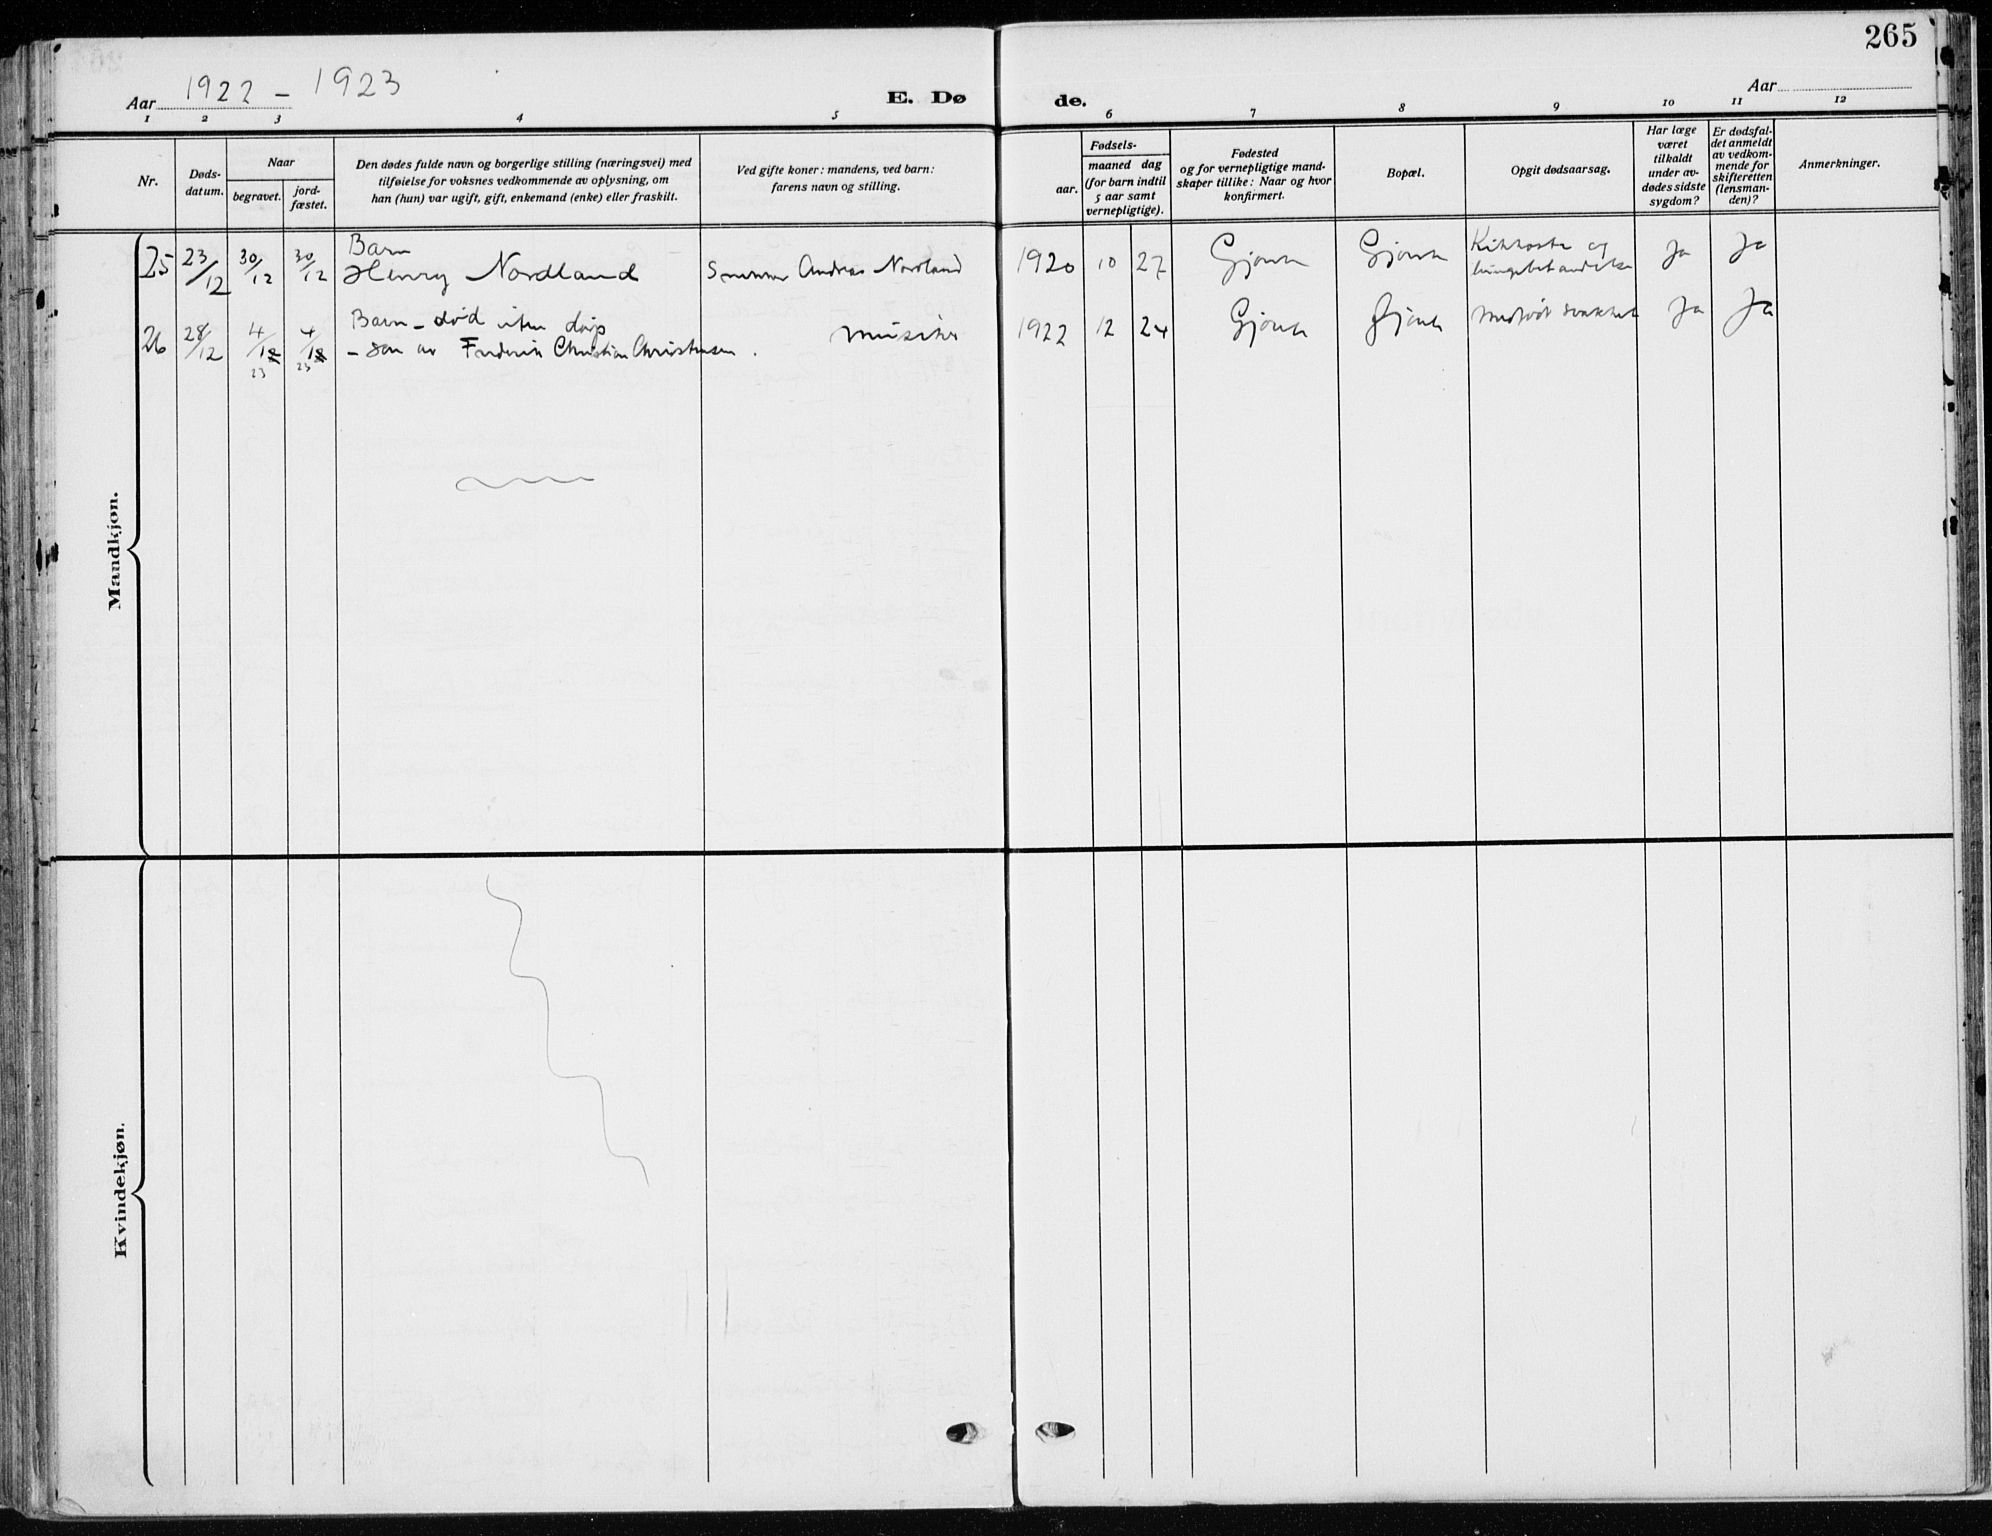 265
Aar 1922 - 1923
E. Dø de.
Aar
1 2 3 4 5 6 7 8 9 10 11 12
Nr.
Døds-
datum.
Naar
begravet.
jord-
fæstet.
Den dødes fulde navn og borgerlige stilling (næringsvei) med
tilføielse for voksnes vedkommende av oplysning, om
han (hun) var ugift, gift, enkemand (enke) eller fraskilt.
Ved gifte koner: mandens, ved barn:
farens navn og stilling.
Fødsels-
aar.
maaned dag
(for barn indtil
5 aar samt
vernepligtige).
Fødested
og for vernepligtige mand-
skaper tillike: Naar og hvor
konfirmert.
Bopæl.
Opgit dødsaarsag.
Har læge
været
tilkaldt
under av-
dødes sidste
sygdom?
Er dødsfal-
det anmeldt
av vedkom-
mende for
skifteretten
(lensman-
den)?
Anmerkninger.
Mandkjøn.
25 23/12 30/12 30/12 Barn
Henry Nordland Andreas Nordland 1920 10 27 Gjøvik Gjøvik Kikhoste og
lungebetændelse Ja Ja
26 28/12 4/1 23 4/1 23 Barn - død uten dåp
- søn av Frederik Christian Christensen. musiker 1922 12 24 Gjøvik Gjøvik Medfødt svakhet Ja Ja
Kvindekjøn.